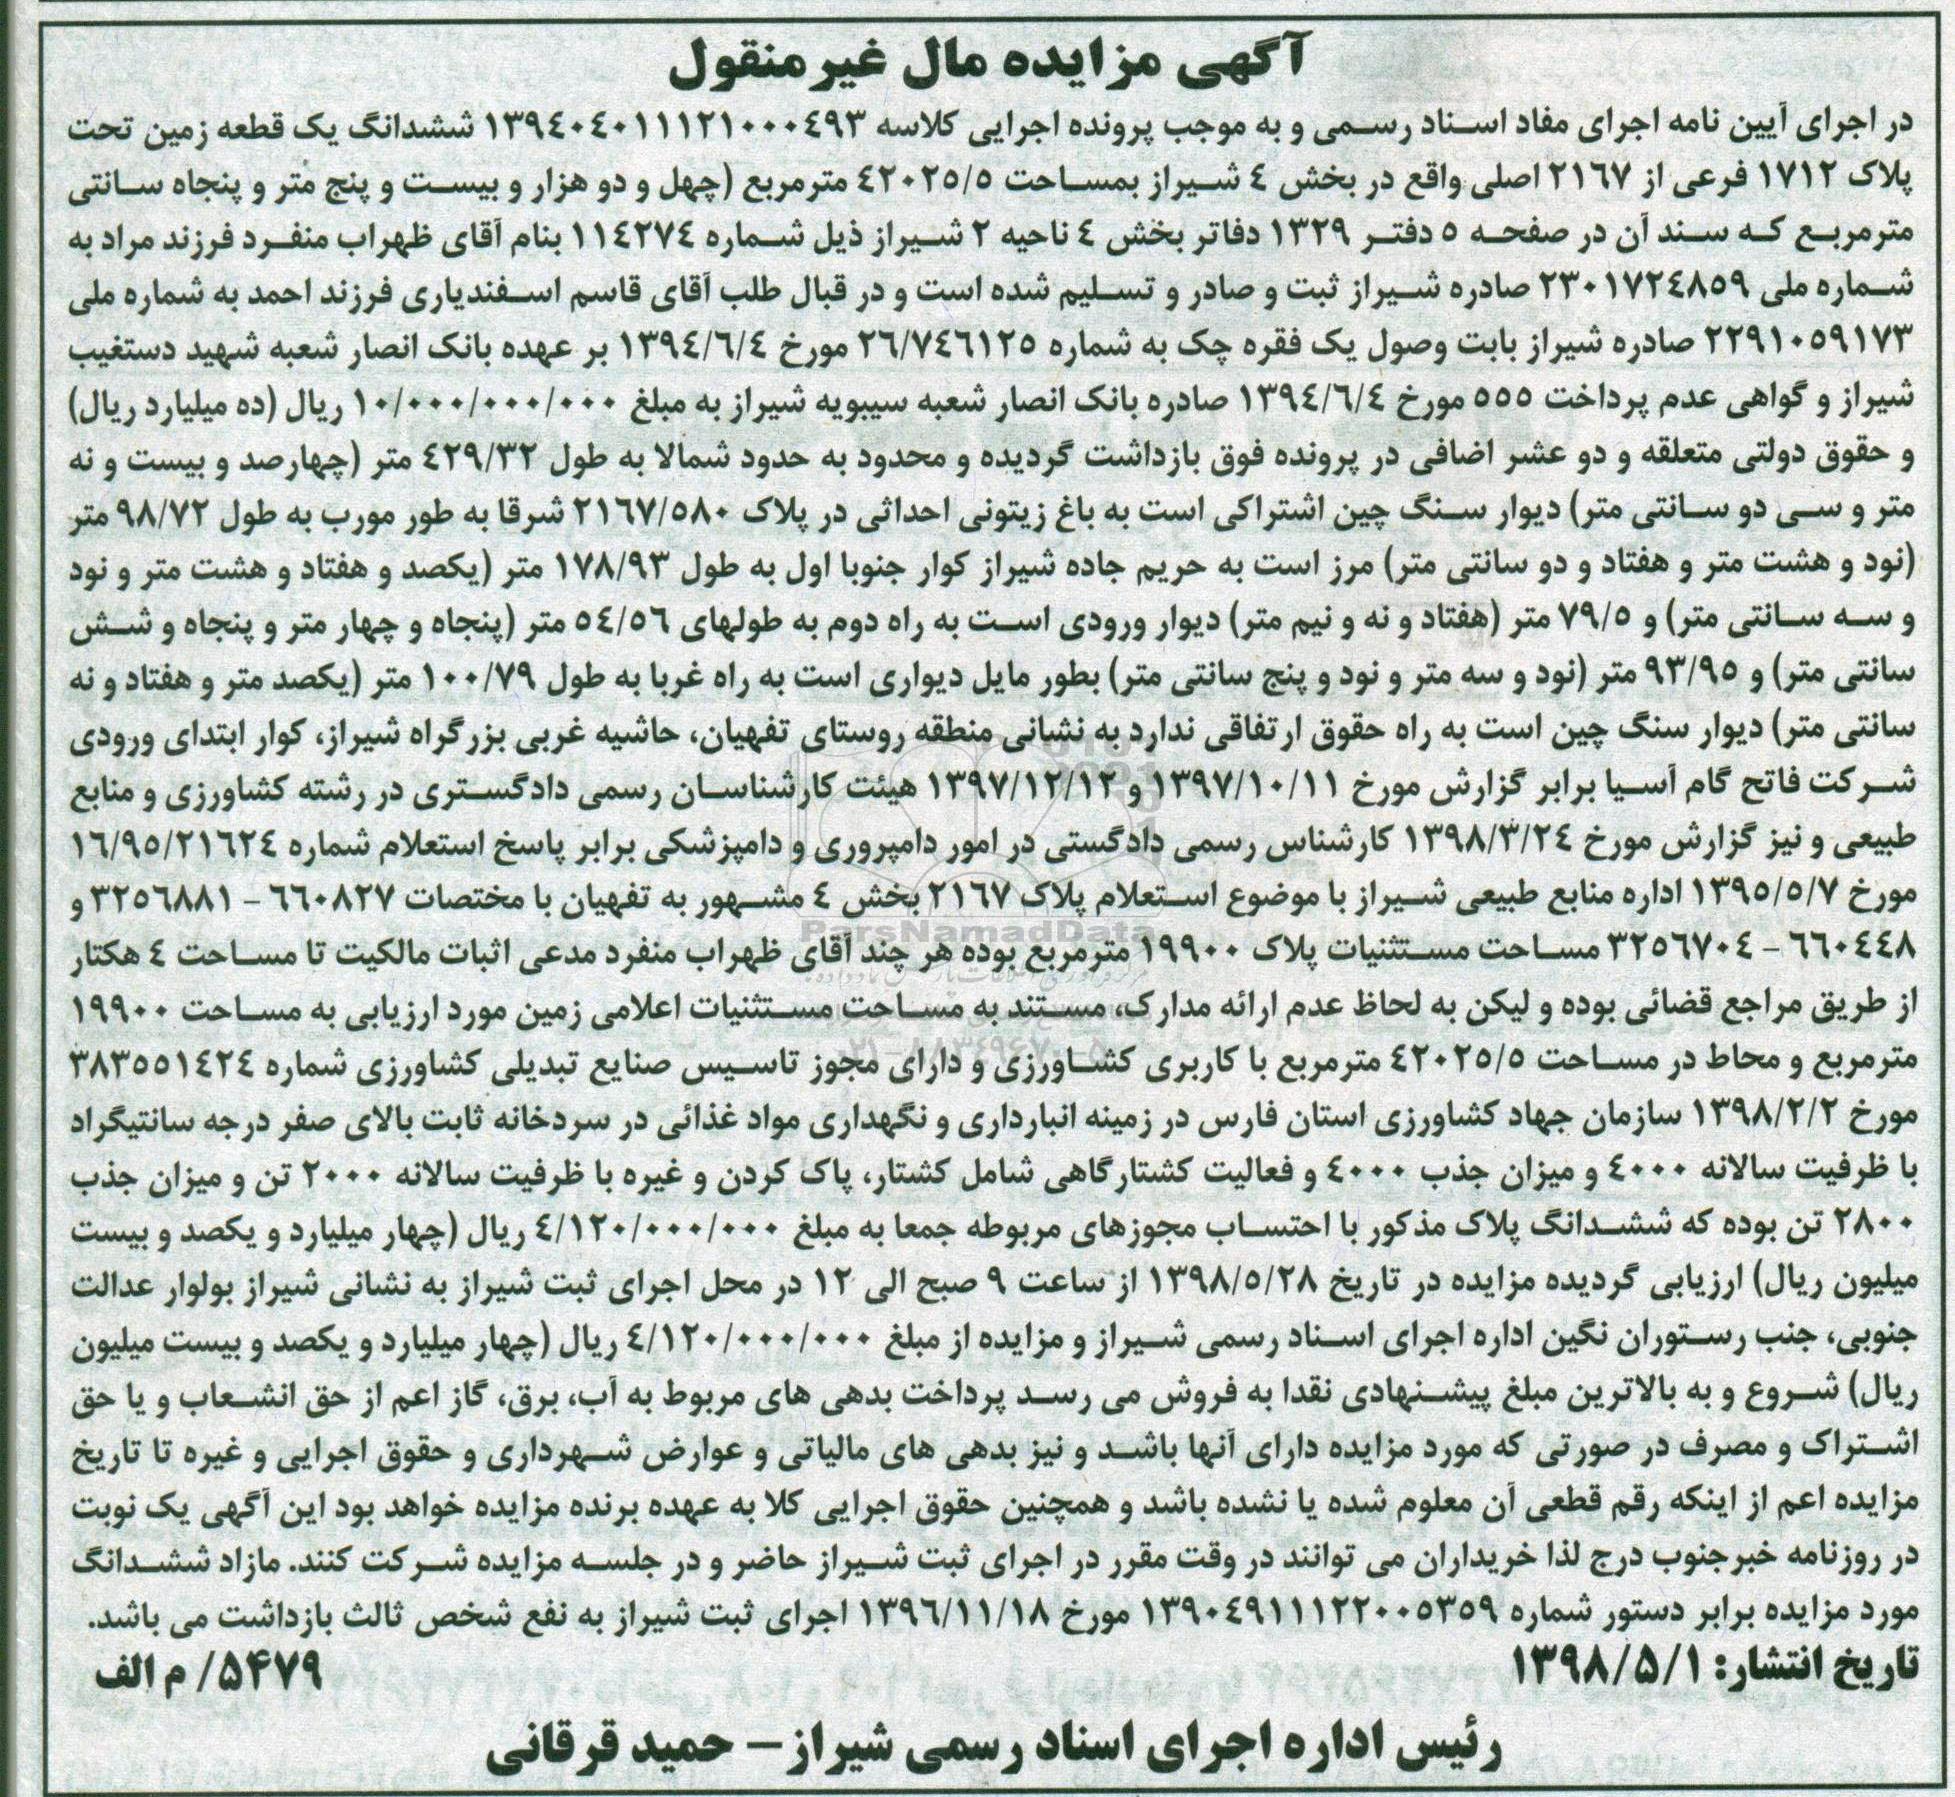 آگهی مزایده مال غیرمنقول
در اجرای آیین نامه اجرای مفاد اسناد رسمی و به موجب پرونده اجرایی کلاسه ۱۳۹٤۰٤۰۱۱۱۲۱۰۰۰٤۹۳ ششدانگ یک قطعه زمین تحت
پلاک ۱۷۱۲ فرعی از ۲۱٦۷ اصلی واقع در بخش ٤ شیراز بمساحت ٤۲۰۲٥/٥ مترمربع (چهل و دو هزار و بیست و پنج متر و پنجاه سانتی
مترمربع که سند آن در صفحه ٥ دفتر ۱۳۲۹ دفاتر بخش ٤ ناحیه ۲ شیراز ذیل شماره ۱۱٤۲۷٤ بنام آقای ظهراب منفرد فرزند مراد به
شماره ملی ۲۳۰۱۷۲٤۸٥۹ صادره شیراز ثبت و صادر و تسلیم شده است و در قبال طلب آقای قاسم اسفندیاری فرزند احمد به شماره ملی
۲۲۹۱۰٥۹۱۷۳ صادره شیراز بابت وصول یک فقره چک به شماره ۲٦/۷٤٦۱۲٥ مورخ ۱۳۹٤/٦/٤ بر عهده بانک انصار شعبه شهید دستغیب
شیراز و گواهی عدم پرداخت ٥٥٥ مورخ ۱۳۹٤/٦/٤ صادره بانک انصار شعبه سیبویه شیراز به مبلغ ۱۰/۰۰۰/۰۰۰/۰۰۰ ریال (ده میلیارد ریال)
و حقوق دولتی متعلقه و دو عشر اضافی در پرونده فوق بازداشت گردیده و محدود به حدود شمالا به طول ٤۲۹/۳۲ متر (چهارصد و بیست و نه
متر و سی دو سانتی متر) دیوار سنگ چین اشتراکی است به باغ زیتونی احداثی در پلاک ۲۱٦۷/٥۸۰ شرقا به طور مورب به طول ۹۸/۷۲ متر
(نود و هشت متر و هفتاد و دو سانتی متر) مرز است به حریم جاده شیراز کوار جنوبا اول به طول ۱۷۸/۹۳ متر (یکصد و هفتاد و هشت متر و نود
و سه سانتی متر) و ۷۹/٥ متر (هفتاد و نه و نیم متر) دیوار ورودی است به راه دوم به طولهای ٥٤/٥٦ متر (پنجاه و چهار متر و پنجاه و شش
سانتی متر) و ۹۳/۹٥ متر (نود و سه متر و نود و پنج سانتی متر) بطور مایل دیواری است به راه غربا به طول ۱۰۰/۷۹ متر (یکصد متر و هفتاد و نه
سانتی متر) دیوار سنگ چین است به راه حقوق ارتفاقی ندارد به نشانی منطقه روستای تفهیان، حاشیه غربی بزرگراه شیراز، کوار ابتدای ورودی
شرکت فاتح گام آسیا برابر گزارش مورخ ۱۳۹۷/۱۰/۱۱ و ۱۳۹۷/۱۲/۱۲ هیئت کارشناسان رسمی دادگستری در رشته کشاورزی و منابع
طبیعی و نیز گزارش مورخ ۱۳۹۸/۳/۲٤ کارشناس رسمی دادگستی در امور دامپروری و دامپزشکی برابر پاسخ استعلام شماره ۱٦/۹٥/۲۱٦۲٤
مورخ ۱۳۹٥/٥/۷ اداره منابع طبیعی شیراز با موضوع استعلام پلاک ۲۱٦۷ بخش ٤ مشهور به تفهیان با مختصات ٦٦۰۸۲۷ - ۳۲٥٦۸۸۱ و
٦٦۰٤٤۸ - ۳۲٥٦۷۰٤ مساحت مستثنیات پلاک ۱۹۹۰۰ مترمربع بوده هر چند آقای ظهراب منفرد مدعی اثبات مالکیت تا مساحت ٤ هکتار
از طریق مراجع قضائی بوده و لیکن به لحاظ عدم ارائه مدارک، مستند به مساحت مستثنیات اعلامی زمین مورد ارزیابی به مساحت ۱۹۹۰۰
مترمربع و محاط در مساحت ٤۲۰۲٥/٥ مترمربع با کاربری کشاورزی و دارای مجوز تاسیس صنایع تبدیلی کشاورزی شماره ۳۸۳٥٥۱٤۲٤
مورخ ۱۳۹۸/۲/۲ سازمان جهاد کشاورزی استان فارس در زمینه انبارداری و نگهداری مواد غذائی در سردخانه ثابت بالای صفر درجه سانتیگراد
با ظرفیت سالانه ٤۰۰۰ و میزان جذب ٤۰۰۰ و فعالیت کشتارگاهی شامل کشتار، پاک کردن و غیره با ظرفیت سالانه ۲۰۰۰ تن و میزان جذب
۲۸۰۰ تن بوده که ششدانگ پلاک مذکور با احتساب مجوزهای مربوطه جمعا به مبلغ ٤/۱۲۰/۰۰۰/۰۰۰ ریال (چهار میلیارد و یکصد و بیست
میلیون ریال) ارزیابی گردیده مزایده در تاریخ ۱۳۹۸/٥/۲۸ از ساعت ۹ صبح الی ۱۲ در محل اجرای ثبت شیراز به نشانی شیراز بولوار عدالت
جنوبی، جنب رستوران نگین اداره اجرای اسناد رسمی شیراز و مزایده از مبلغ ٤/۱۲۰/۰۰۰/۰۰۰ ریال (چهار میلیارد و یکصد و بیست میلیون
ریال) شروع و به بالاترین مبلغ پیشنهادی نقدا به فروش می رسد پرداخت بدهی های مربوط به آب، برق، گاز اعم از حق انشعاب و یا حق
اشتراک و مصرف در صورتی که مورد مزایده دارای آنها باشد و نیز بدهی های مالیاتی و عوارض شهرداری و حقوق اجرایی و غیره تا تاریخ
مزایده اعم از اینکه رقم قطعی آن معلوم شده یا نشده باشد و همچنین حقوق اجرایی کلا به عهده برنده مزایده خواهد بود این آگهی یک نوبت
در روزنامه خبرجنوب درج لذا خریداران می توانند در وقت مقرر در اجرای ثبت شیراز حاضر و در جلسه مزایده شرکت کنند. مازاد ششدانگ
مورد مزایده برابر دستور شماره ۱۳۹۰٤۹۱۱۱۲۲۰۰٥۳٥۹ مورخ ۱۳۹٦/۱۱/۱۸ اجرای ثبت شیراز به نفع شخص ثالث بازداشت می باشد.
تاریخ انتشار: ۱۳۹۸/۵/۱
۵۴۷۹/ م الف
رئیس اداره اجرای اسناد رسمی شیراز – حمید قرقانی
ParsNamadData